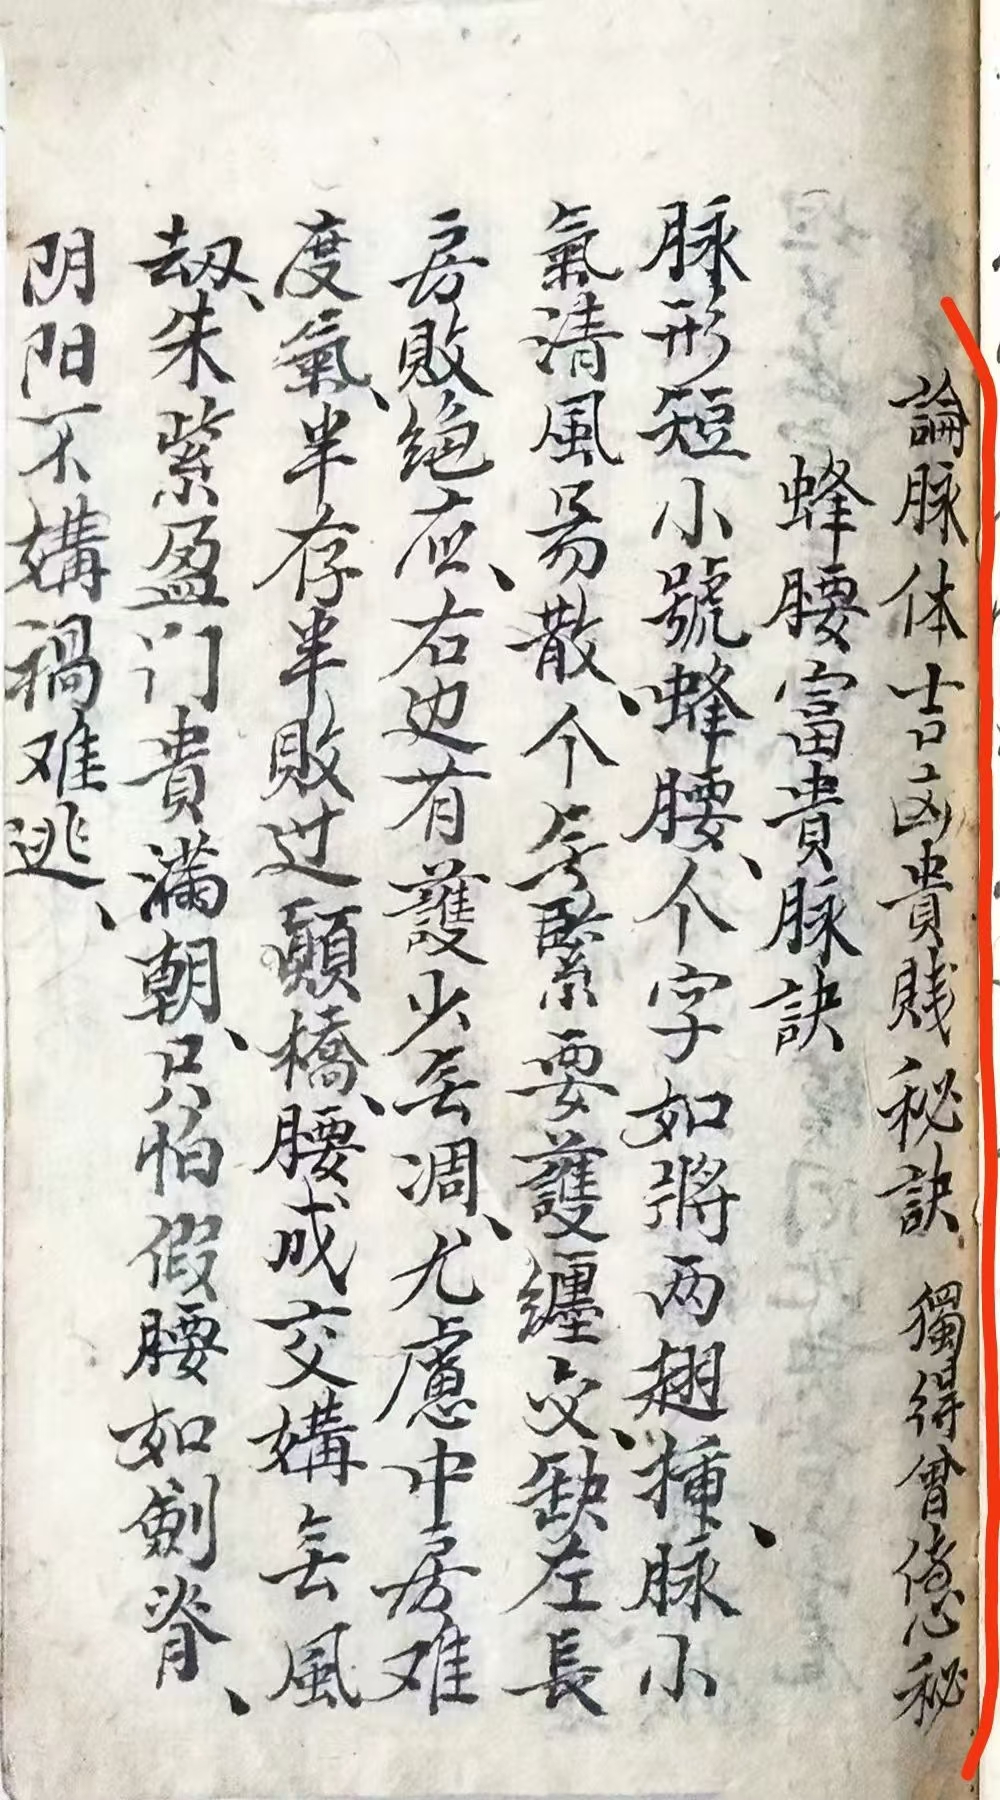 論脉体吉凶貴賎秘訣 獨得曾億秘
蜂腰富貴脉訣
脉形短小號蜂腰、个字如將两翅揷、脉小
氣清風易散、个与緊要護纏交、缺左長
房敗绝应、右边若護少無凋、尤慮中房难
度氣、半存半敗过顛橋、腰成交媾無風
刼、朱紫盈门貴滿朝、只怕假腰如劍脊、
阴阳不媾禍难逃、